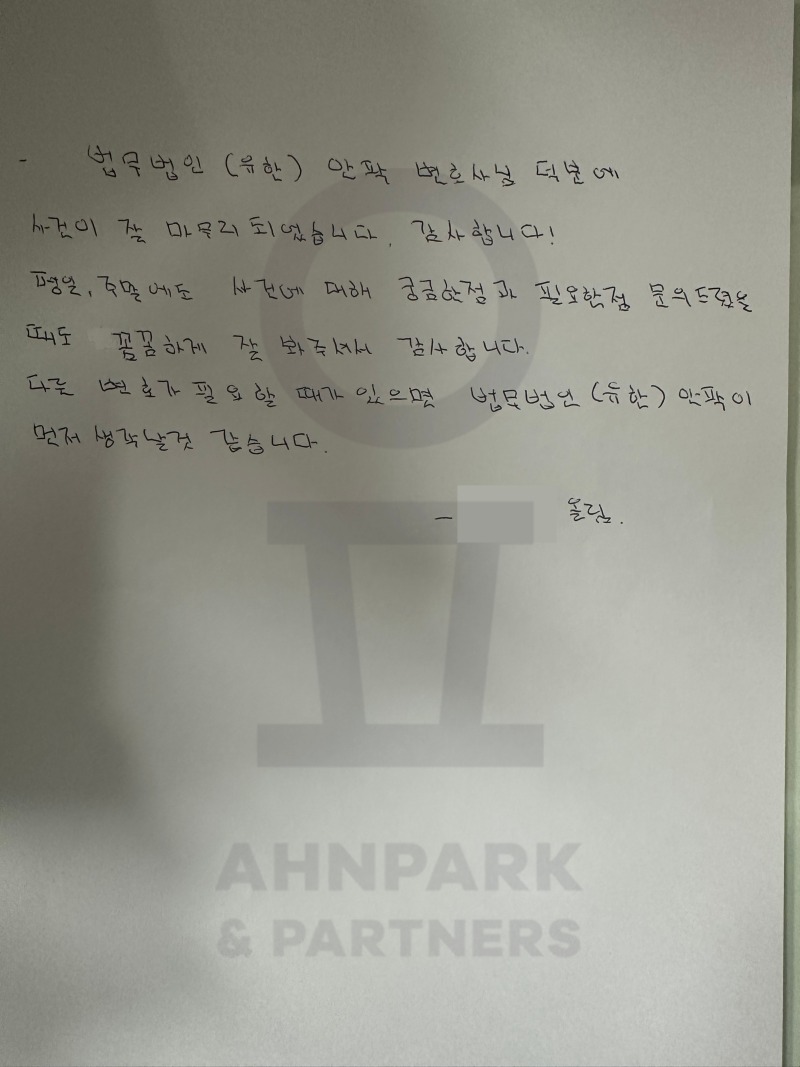 - 법무법인 (유한) 안팍 변호사님 덕분에
사건이 잘 마무리 되었습니다. 감사합니다!
평일, 주말에도 사건에 대해 궁금한점과 필요한점 문의드렸을
때도 꼼꼼하게 잘 봐주셔서 감사합니다.
다른 변호가 필요할 때가 있으면 법무법인 (유한) 안팍이
먼저 생각날것 같습니다.
- 올림.
AHNPARK
& PARTNERS